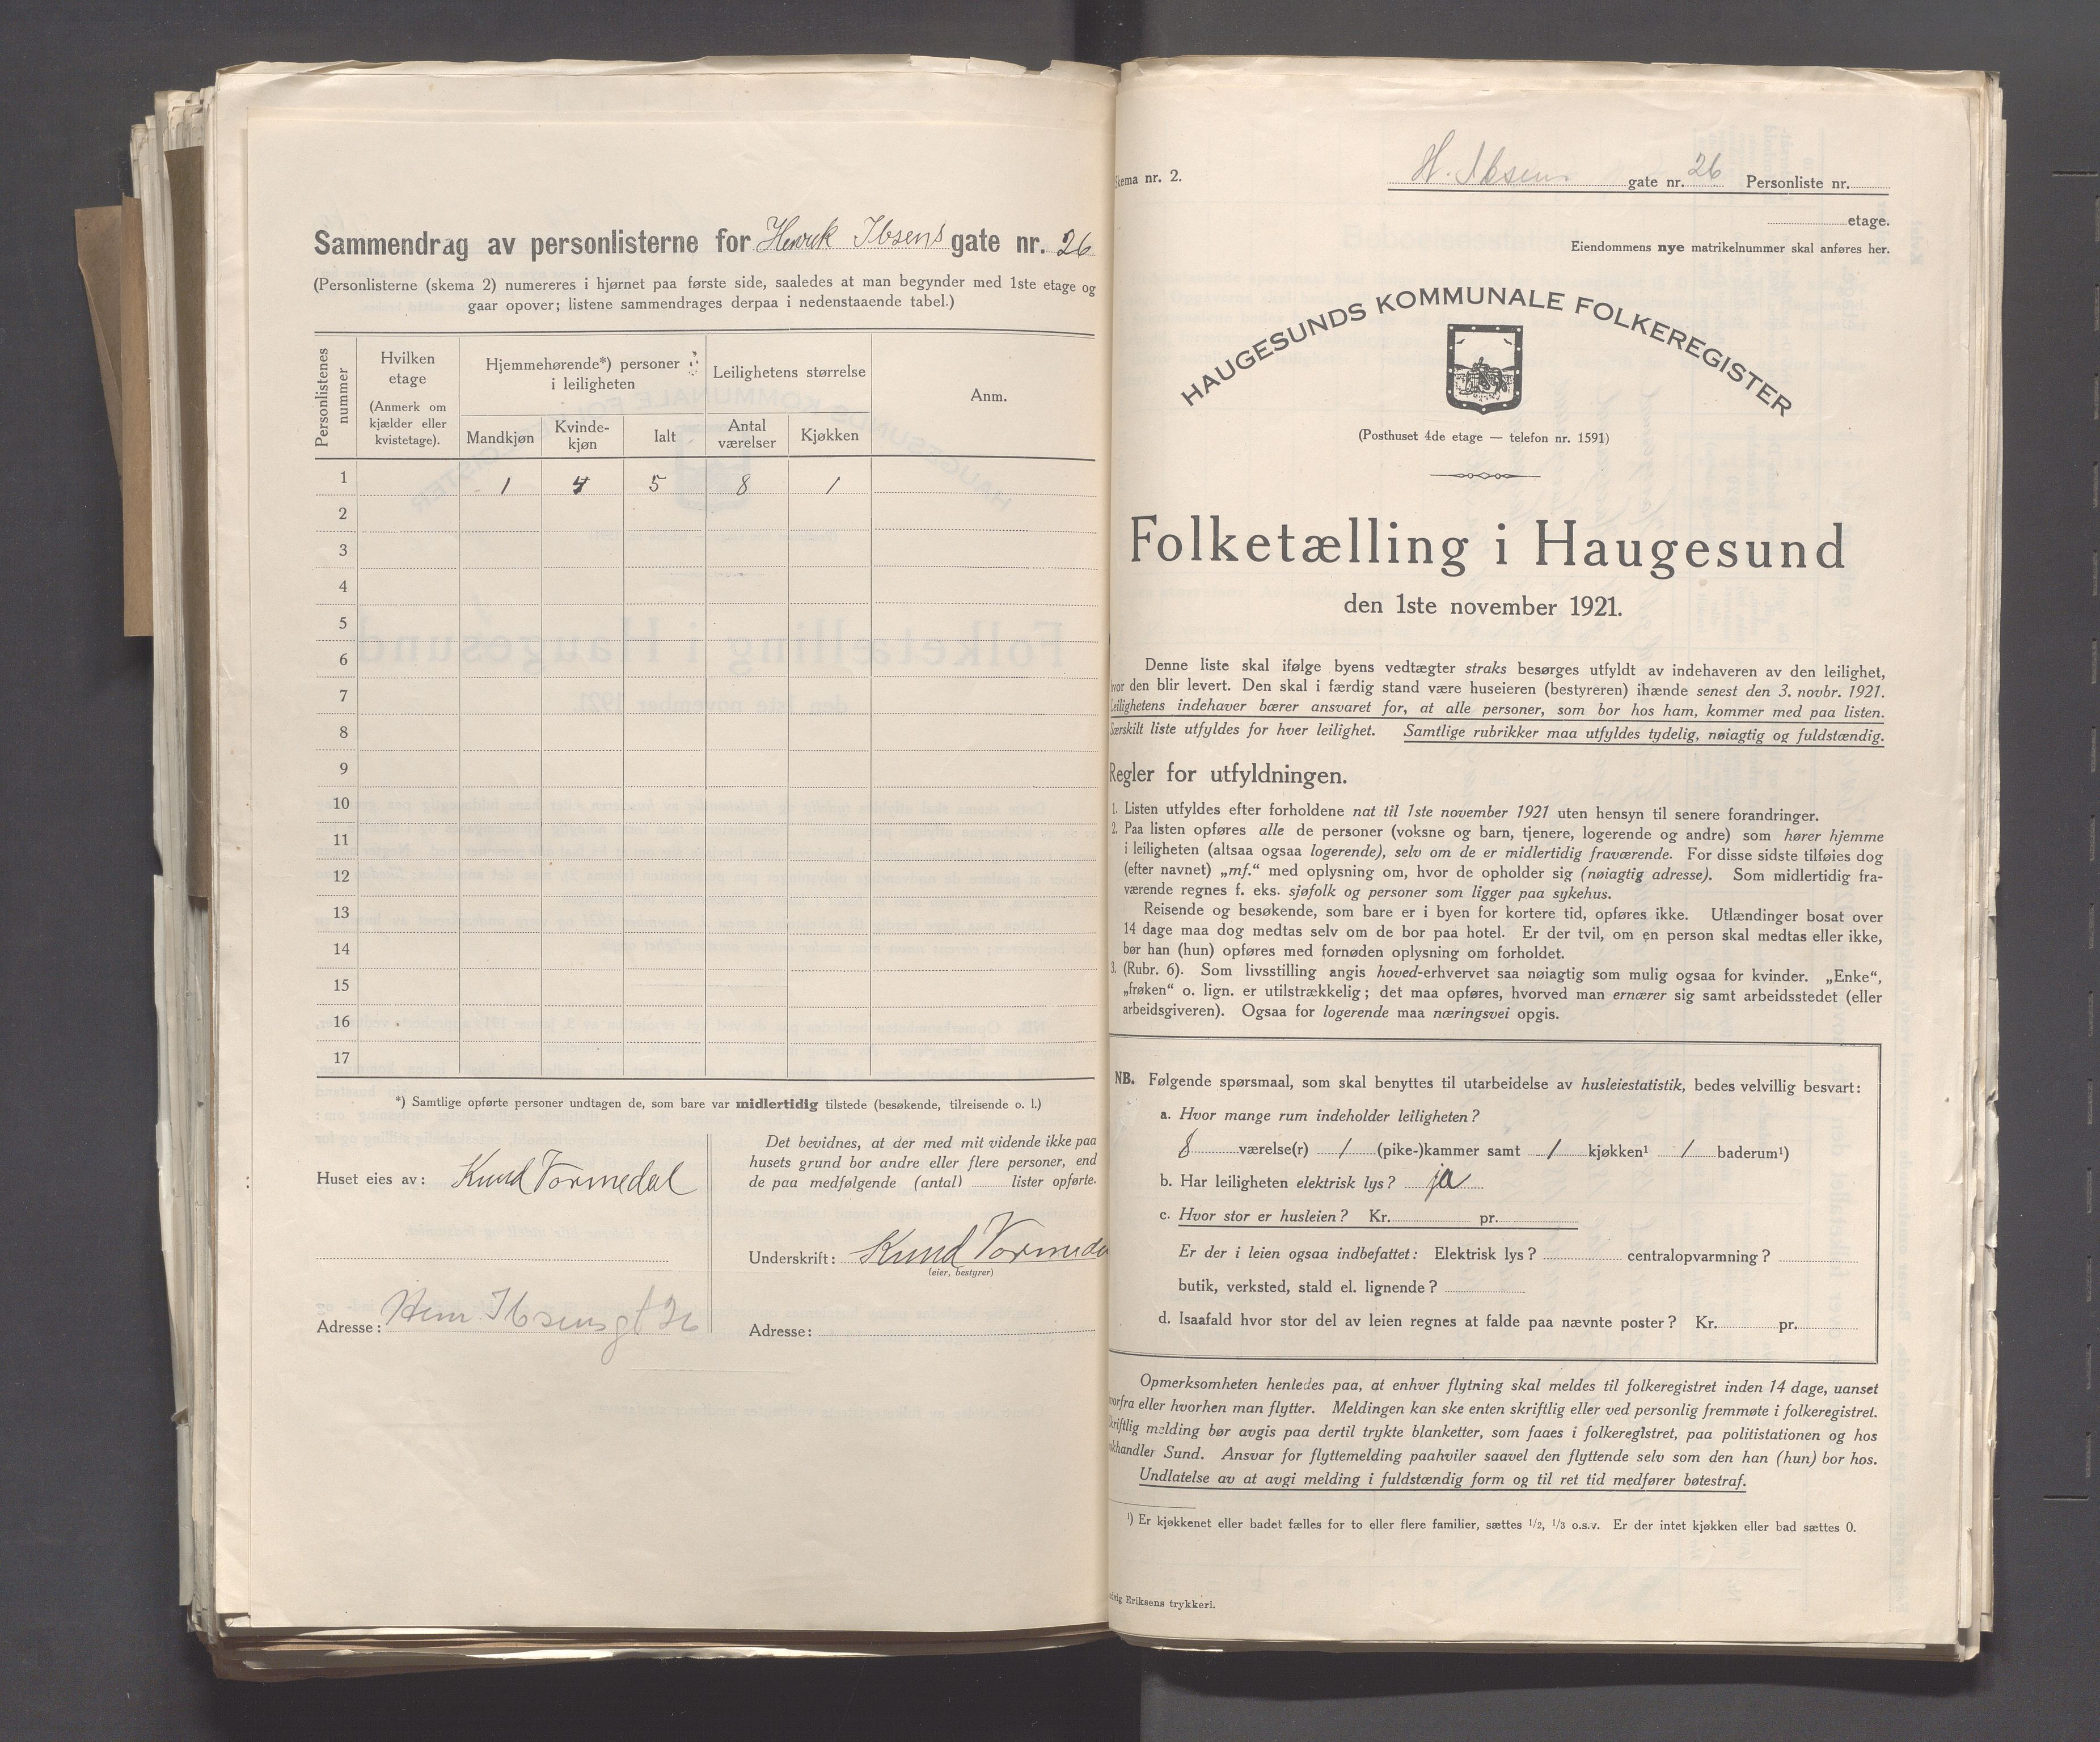 Sammendrag av personlisterne for Henrik Ibsens gate nr. 26
(Personlisterne (skema 2) numereres i hjørnet paa første side, saaledes at man begynder med 1ste etage og
gaar opover; listene sammendrages derpaa i nedenstaaende tabel.)
Personlistenes nummer
Hvilken etage (Anmerk om kjælder eller kvistetage).
Hjemmehørende*) personer i leiligheten
Leilighetens størrelse
Anm.
Mandkjøn
Kvinde-kjøn
Ialt
Antal værelser
Kjøkken
1 1 4 5 8 1
2
3
4
5
6
7
8
9
10
11
12
13
14
15
16
17
*) Samtlige opførte personer undtagen de, som bare var midlertidig tilstede (besøkende, tilreisende o. l.)
Huset eies av: Knud Vormedal
Adresse: Hen. Ibsensgt 26
Det bevidnes, at der med mit vidende ikke paa
husets grund bor andre eller flere personer, end
de paa medfølgende (antal) lister opførte.
Underskrift: Knud Vormedal
(eier, bestyrer)
Adresse:
Skema nr. 2.
H. Ibsens gate nr. 26 Personliste nr.
etage.
Eiendommens nye matrikelnummer skal anføres her.
HAUGESUNDS KOMMUNALE FOLKEREGISTER
(Posthuset 4de etage — telefon nr. 1591)
Folketælling i Haugesund
den 1ste november 1921.
Denne liste skal ifølge byens vedtægter straks besørges utfyldt av indehaveren av den leilighet,
hvor den blir levert. Den skal i færdig stand være huseieren (bestyreren) ihænde senest den 3. novbr. 1921.
Leilighetens indehaver bærer ansvaret for, at alle personer, som bor hos ham, kommer med paa listen.
Særskilt liste utfyldes for hver leilighet. Samtlige rubrikker maa utfyldes tydelig, nøiagtig og fuldstændig.
Regler for utfyldningen.
1. Listen utfyldes efter forholdene nat til 1ste november 1921 uten hensyn til senere forandringer.
2. Paa listen opføres alle de personer (voksne og barn, tjenere, logerende og andre) som hører hjemme
i leiligheten (altsaa ogsaa logerende), selv om de er midlertidig fraværende. For disse sidste tilføies dog
(efter navnet) „mf.“ med oplysning om, hvor de opholder sig (nøiagtig adresse). Som midlertidig fra-
værende regnes f. eks. sjøfolk og personer som ligger paa sykehus.
Reisende og besøkende, som bare er i byen for kortere tid, opføres ikke. Utlændinger bosat over
14 dage maa dog medtas selv om de bor paa hotel. Er der tvil, om en person skal medtas eller ikke,
bør han (hun) opføres med fornøden oplysning om forholdet.
3. (Rubr. 6). Som livsstilling angis hoved-erhvervet saa nøiagtig som mulig ogsaa for kvinder. „Enke“,
„frøken“ o. lign. er utilstrækkelig; det maa opføres, hvorved man ernærer sig samt arbeidsstedet (eller
arbeidsgiveren). Ogsaa for logerende maa næringsvei opgis.
NB. Følgende spørsmaal, som skal benyttes til utarbeidelse av husleiestatistik, bedes velvillig besvart:
a. Hvor mange rum indeholder leiligheten?
8 værelse(r) 1 (pike-)kammer samt 1 kjøkken¹ 1 baderum¹)
b. Har leiligheten elektrisk lys? ja
c. Hvor stor er husleien? Kr. pr.
Er der i leien ogsaa indbefattet: Elektrisk lys? centralopvarmning?
butik, verksted, stald el. lignende?
d. Isaafald hvor stor del av leien regnes at falde paa nævnte poster? Kr. pr.
Opmerksomheten henledes paa, at enhver flytning skal meldes til folkeregistret inden 14 dage, uanset
hvorfra eller hvorhen man flytter. Meldingen kan ske enten skriftlig eller ved personlig fremmøte i folkeregistret.
Skriftlig melding bør avgis paa dertil trykte blanketter, som faaes i folkeregistret, paa politistationen og hos
bokhandler Sund. Ansvar for flyttemelding paahviler saavel den flyttende selv som den han (hun) bor hos.
Undlatelse av at avgi melding i fuldstændig form og til ret tid medfører bøtestraf.
¹) Er kjøkkenet eller badet fælles for to eller flere familier, sættes 1/2, 1/3 o.s.v. Er der intet kjøkken eller bad sættes 0.
Eriksens trykkeri.